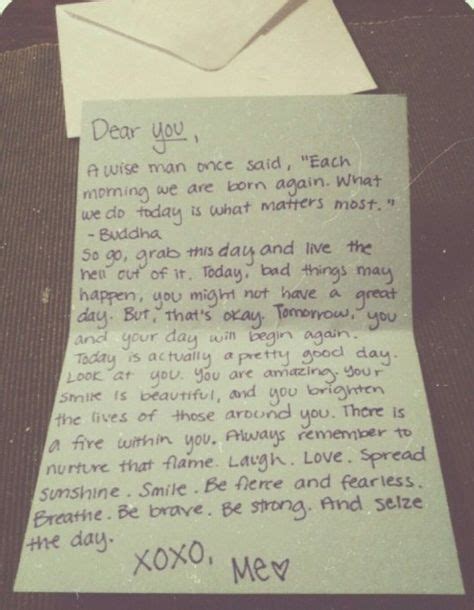 Dear you,
A wise man once said, "Each
morning we are born again. What
we do today is what matters most."
- Buddha
So go, grab this day and live the
hell out of it. Today, bad things may
happen, you might not have a great
day. But, that's okay. Tomorrow, you
and your day will begin again.
Today is actually a pretty good day.
Look at you. You are amazing. Your
smile is beautiful, and you brighten
the lives of those around you. There is
a fire within you. Always remember to
nurture that flame. Laugh. Love. Spread
sunshine. Smile. Be fierce and fearless.
Breathe. Be brave. Be strong. And seize
the day.
XOXO,
Me♡